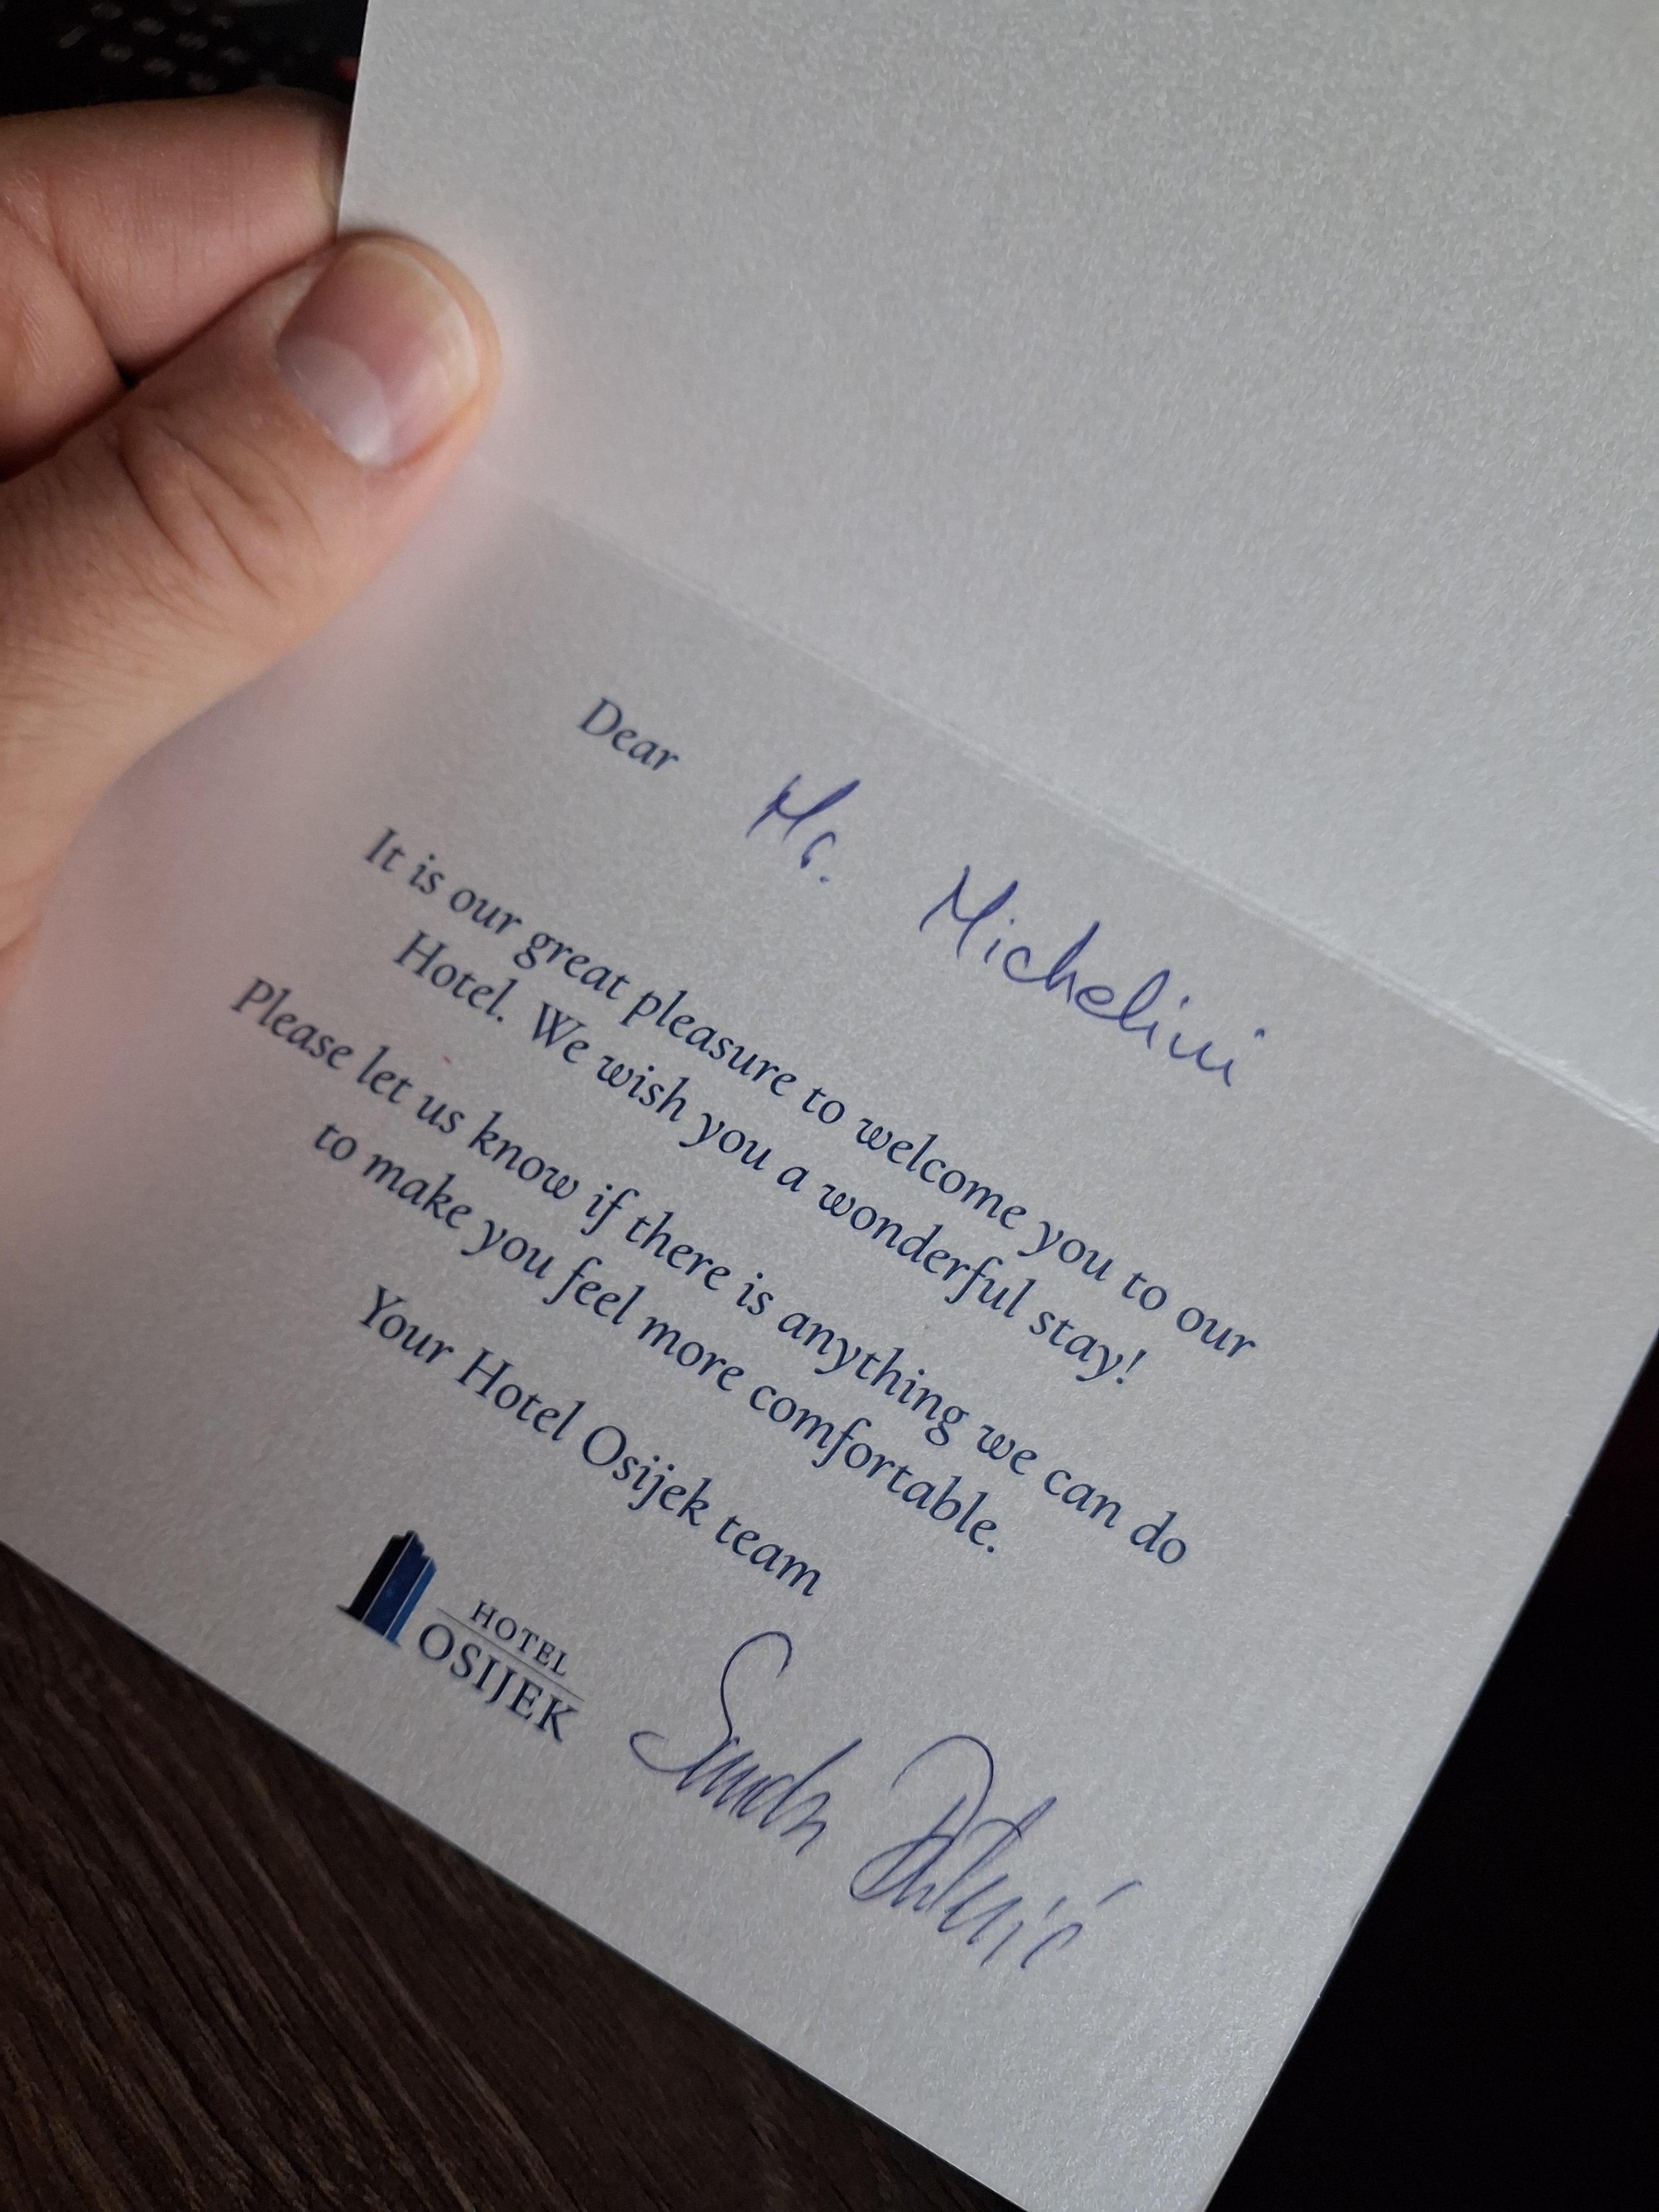 Dear Mr. Michelini
It is our great pleasure to welcome you to our
Hotel. We wish you a wonderful stay!
Please let us know if there is anything we can do
to make you feel more comfortable.
Your Hotel Osijek team
HOTEL
OSIJEK